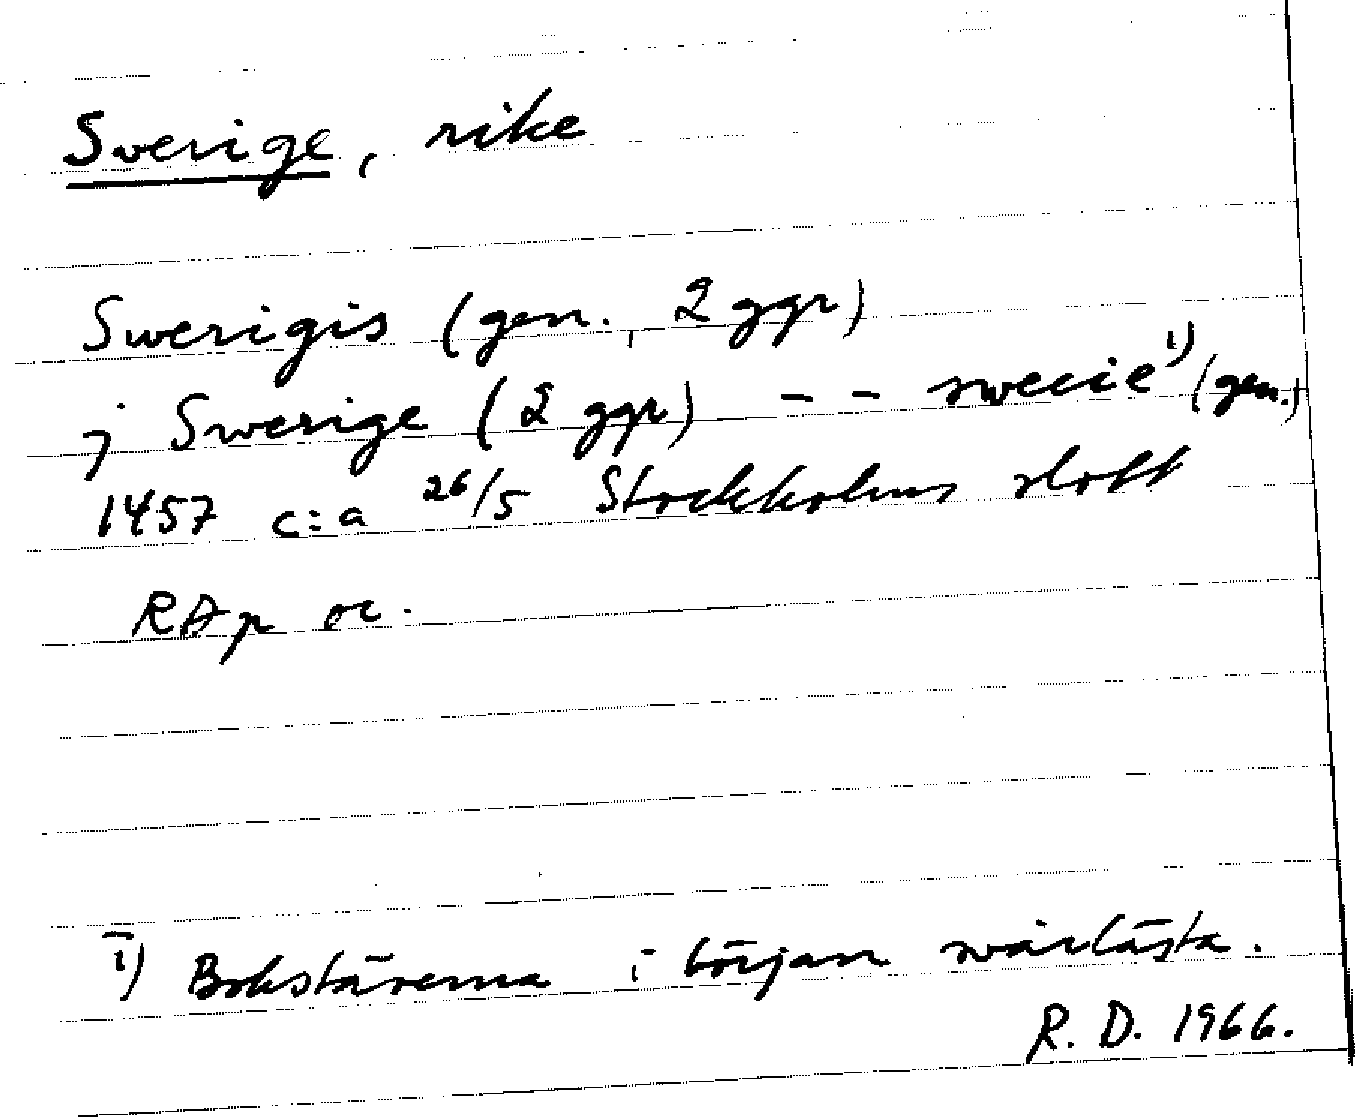 Sverige, rike
Swerigis (gen., 2 ggr)
j Swerige (2 ggr) - - swecie¹⁾ (gen.)
1457 c:a 26/5 Stockholms slott
RAp or.
1) Bokstäverna i början svårlästa.
R. D. 1966.